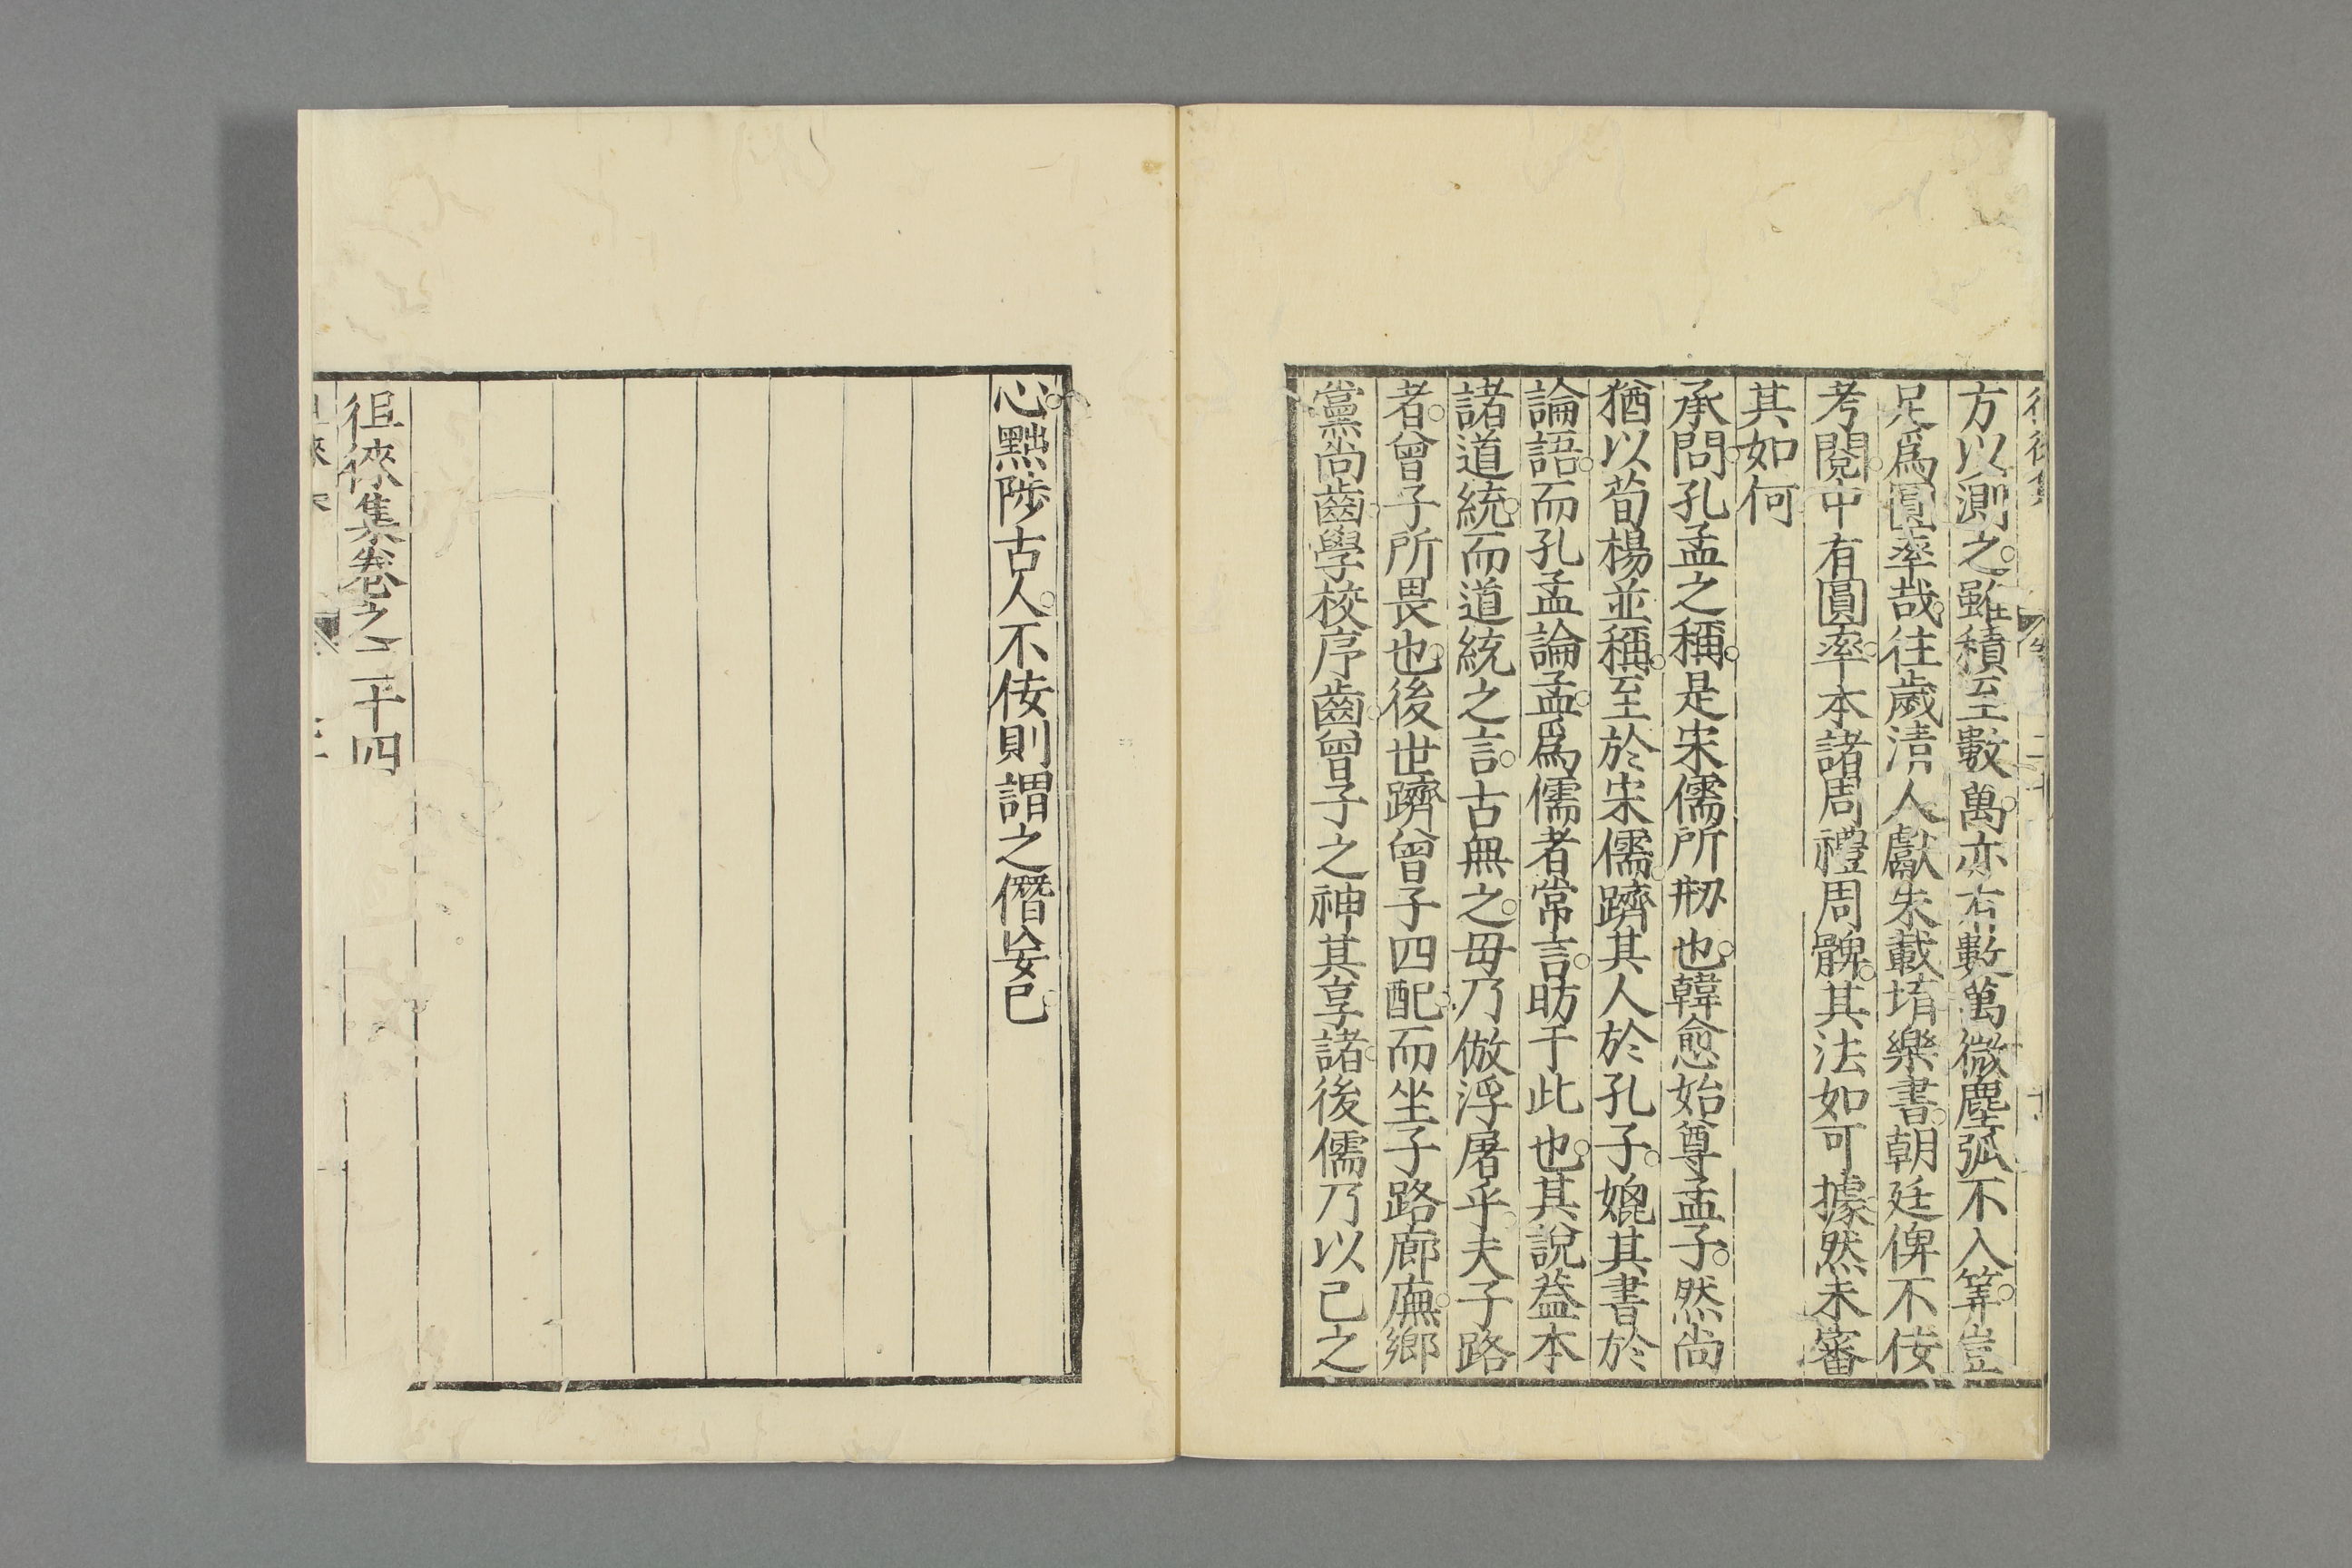 方以測之。雖積至數萬。亦有數萬微塵弧不入筭。豈
足爲圓率哉。往歲淸人獻朱載堉樂書。朝廷俾不佞
考閱。中有圓率。本諸周禮周髀。其法如可據。然未審
其如何
承問。孔孟之稱。是宋儒所刱也。韓愈始尊孟子。然尚
猶以荀楊並稱。至於宋儒。躋其人於孔子。媲其書於
論語。而孔孟論孟。爲儒者常言。昉于此也。其說葢本
諸道統。而道統之言。古無之。毋乃倣浮屠乎。夫子路
者。曾子所畏也。後世躋曾子四配。而坐子路廊廡。鄉
黨尚齒。學校序齒。曾子之神其享諸。後儒乃以己之
心。黜陟古人。不佞則謂之僭妄已。
徂徠集卷之二十四